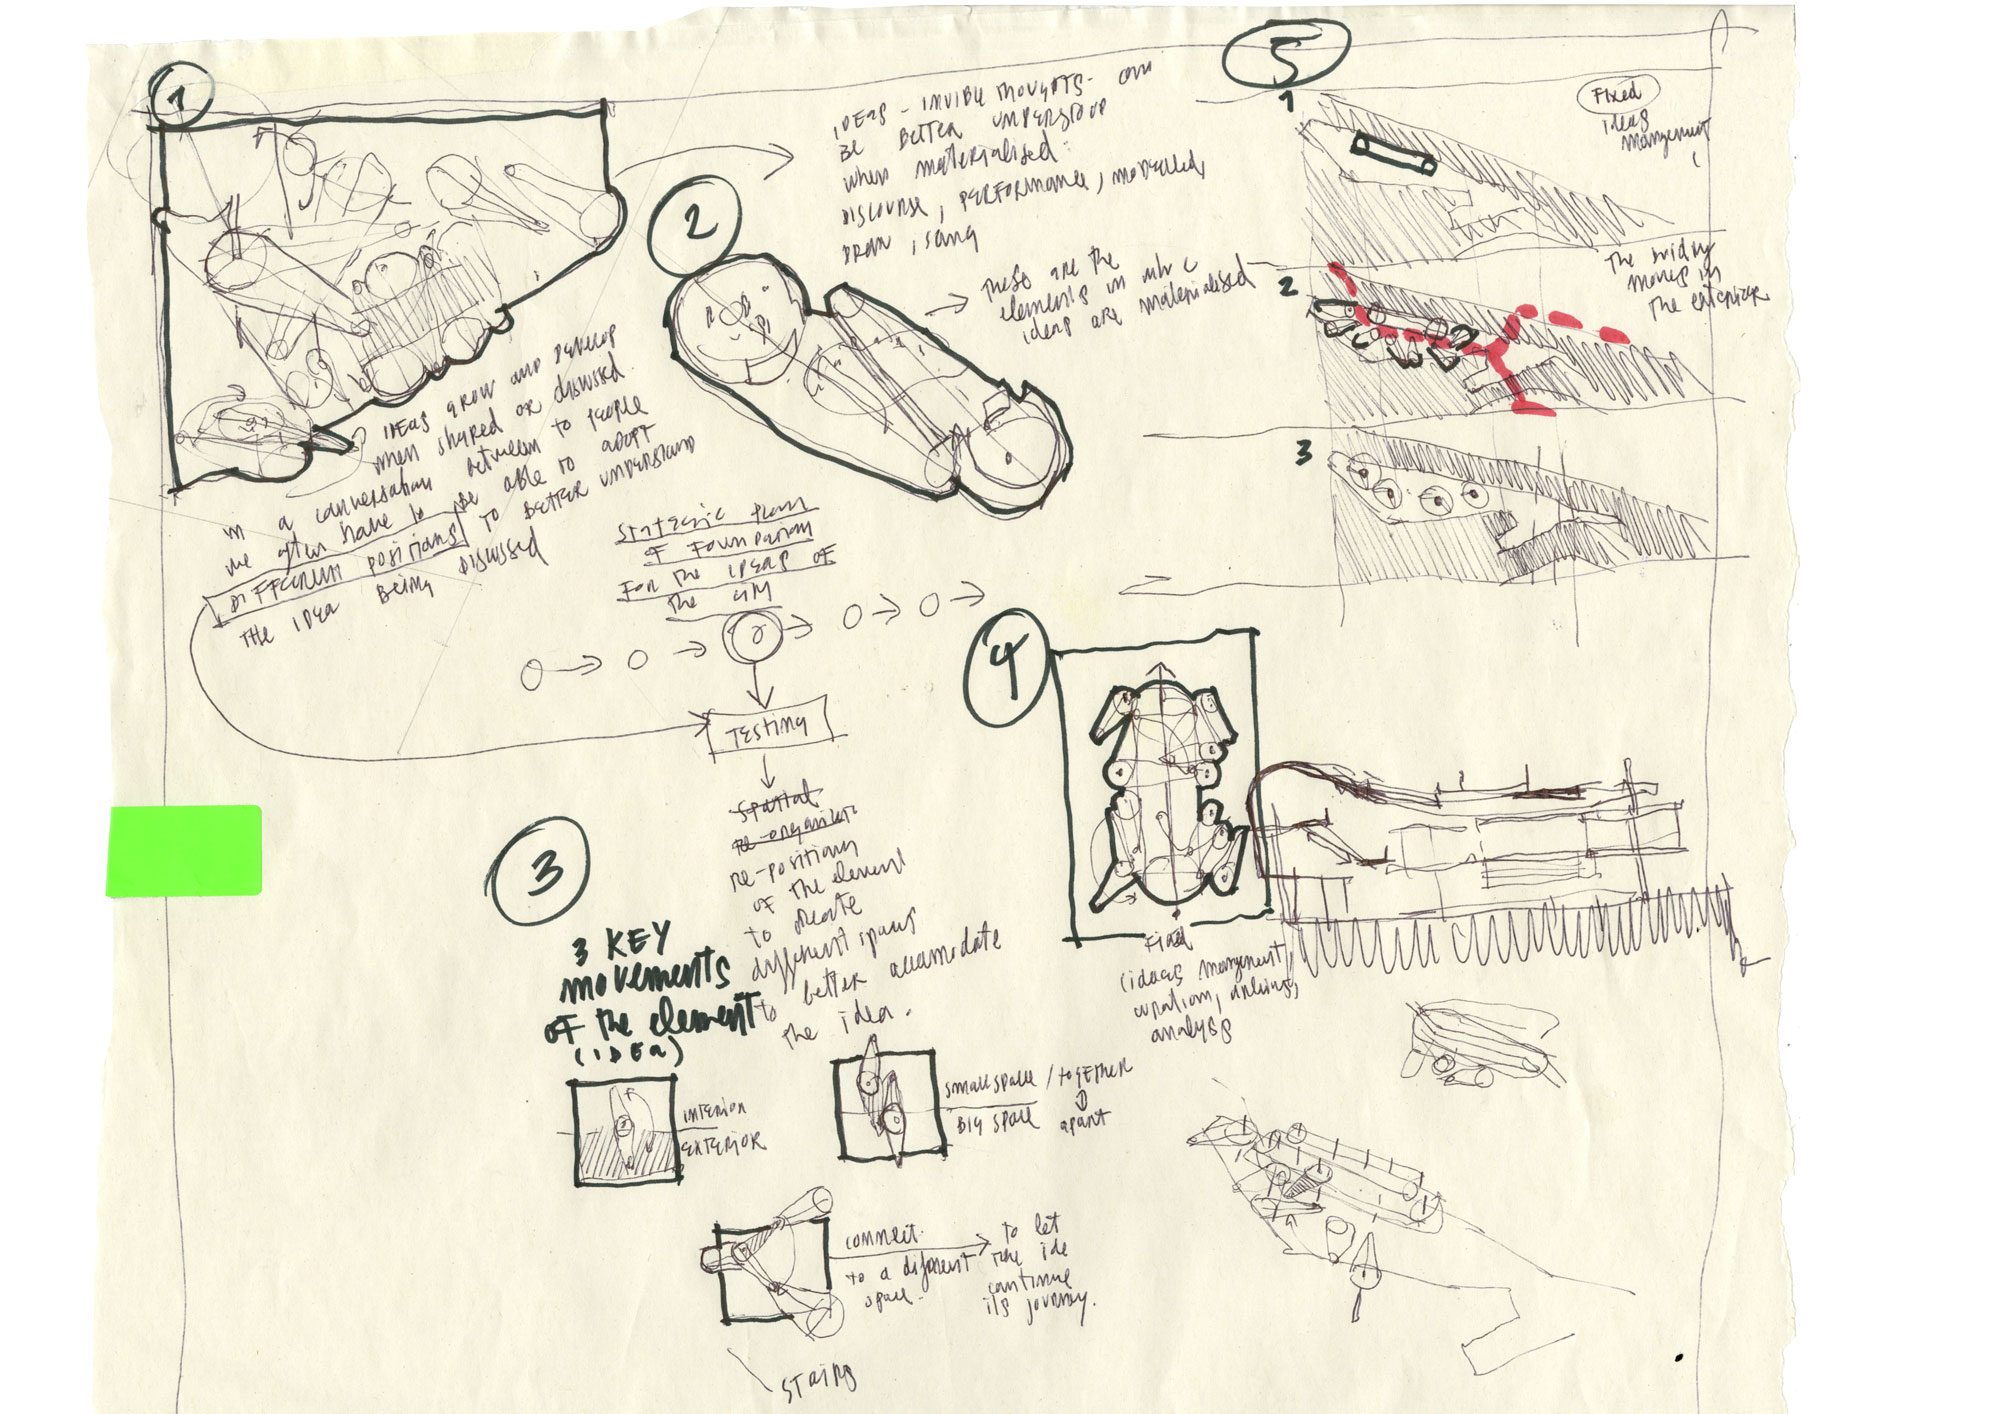 1
IDEAS grow AND DEVELOP
when shared OR discussed.
in a conversation between to people
we often have to be able to ADOPT
DIFFERENT positions TO BETTER UNDERSTAND
THE IDEA BEING DISCUSSED
IDEAS - INVIBLE THOUGHTS- can
BE BETTER UNDERSTOOD
when materialised:
DISCOURSE, PERFORMANCE, modelled,
DRAW, sang
2
These are the
elements in
ideas are materialised
STRATEGIC plan
OF FOUNDATION
FOR the IDEAS OF
the GM
TESTING
re-positions
of the element
to create
different spaces
to better accamodate
the idea.
3
3 KEY
movements
OF the element
(IDEA)
INTERIOR
EXTERIOR
SMALL SPACE / TOGETHER
BIG SPACE apart
connect
to a diferent
space.
to let
the ide
continue
its journey.
STAIRS
4
Fixed
(ideas mangement,
analysis
5
1
Fixed
ideas
mangement
2
The
moves in
The exterior
3